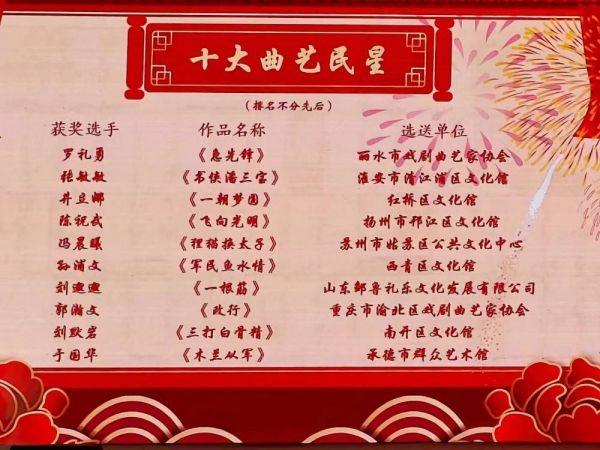 十大曲艺民星
（排名不分先后）
获奖选手 作品名称 选送单位
罗礼勇 《急先锋》 丽水市戏剧曲艺家协会
张敏敏 《书侠潘三宝》 淮安市清江浦区文化馆
井豆娜 《一朝梦圆》 红桥区文化馆
陈祝武 《飞向光明》 扬州市邗江区文化馆
冯晨曦 《狸猫换太子》 苏州市姑苏区公共文化中心
孙浦文 《军民鱼水情》 西青区文化馆
刘邈邈 《一根筋》 山东邹鲁礼乐文化发展有限公司
郭瀚文 《改行》 重庆市渝北区戏剧曲艺家协会
刘默岩 《三打白骨精》 南开区文化馆
于国华 《木兰从军》 承德市群众艺术馆